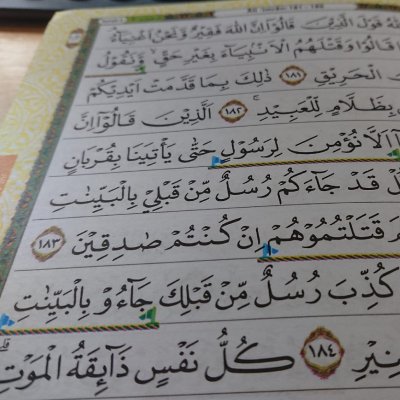 قَوْلَ الَّذِيْنَ قَالُوْٓا اِنَّ اللّٰهَ فَقِيْرٌ وَّنَحْنُ اَغْنِيَاۤءُ
قَالُوْا وَقَتْلَهُمُ الْاَنْۢبِيَاۤءَ بِغَيْرِ حَقٍّۙ وَّنَقُوْلُ
الْحَرِيْقِ ١٨١ ذٰلِكَ بِمَا قَدَّمَتْ اَيْدِيْكُمْ
بِظَلَّامٍ لِّلْعَبِيْدِۚ ١٨٢ اَلَّذِيْنَ قَالُوْٓا اِنَّ
اَلَّا نُؤْمِنَ لِرَسُوْلٍ حَتّٰى يَأْتِيَنَا بِقُرْبَانٍ
قَدْ جَاۤءَكُمْ رُسُلٌ مِّنْ قَبْلِيْ بِالْبَيِّنٰتِ
قَتَلْتُمُوْهُمْ اِنْ كُنْتُمْ صٰدِقِيْنَ ١٨٣
كُذِّبَ رُسُلٌ مِّنْ قَبْلِكَ جَاۤءُوْ بِالْبَيِّنٰتِ
١٨٤ كُلُّ نَفْسٍ ذَاۤىِٕقَةُ الْمَوْتِۗ